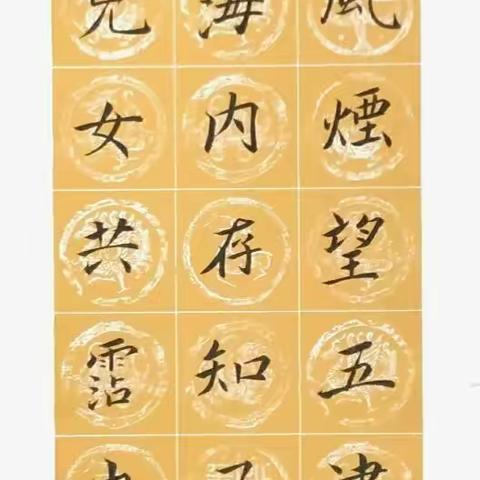 風煙望五津
海内存知己
兒女共霑巾